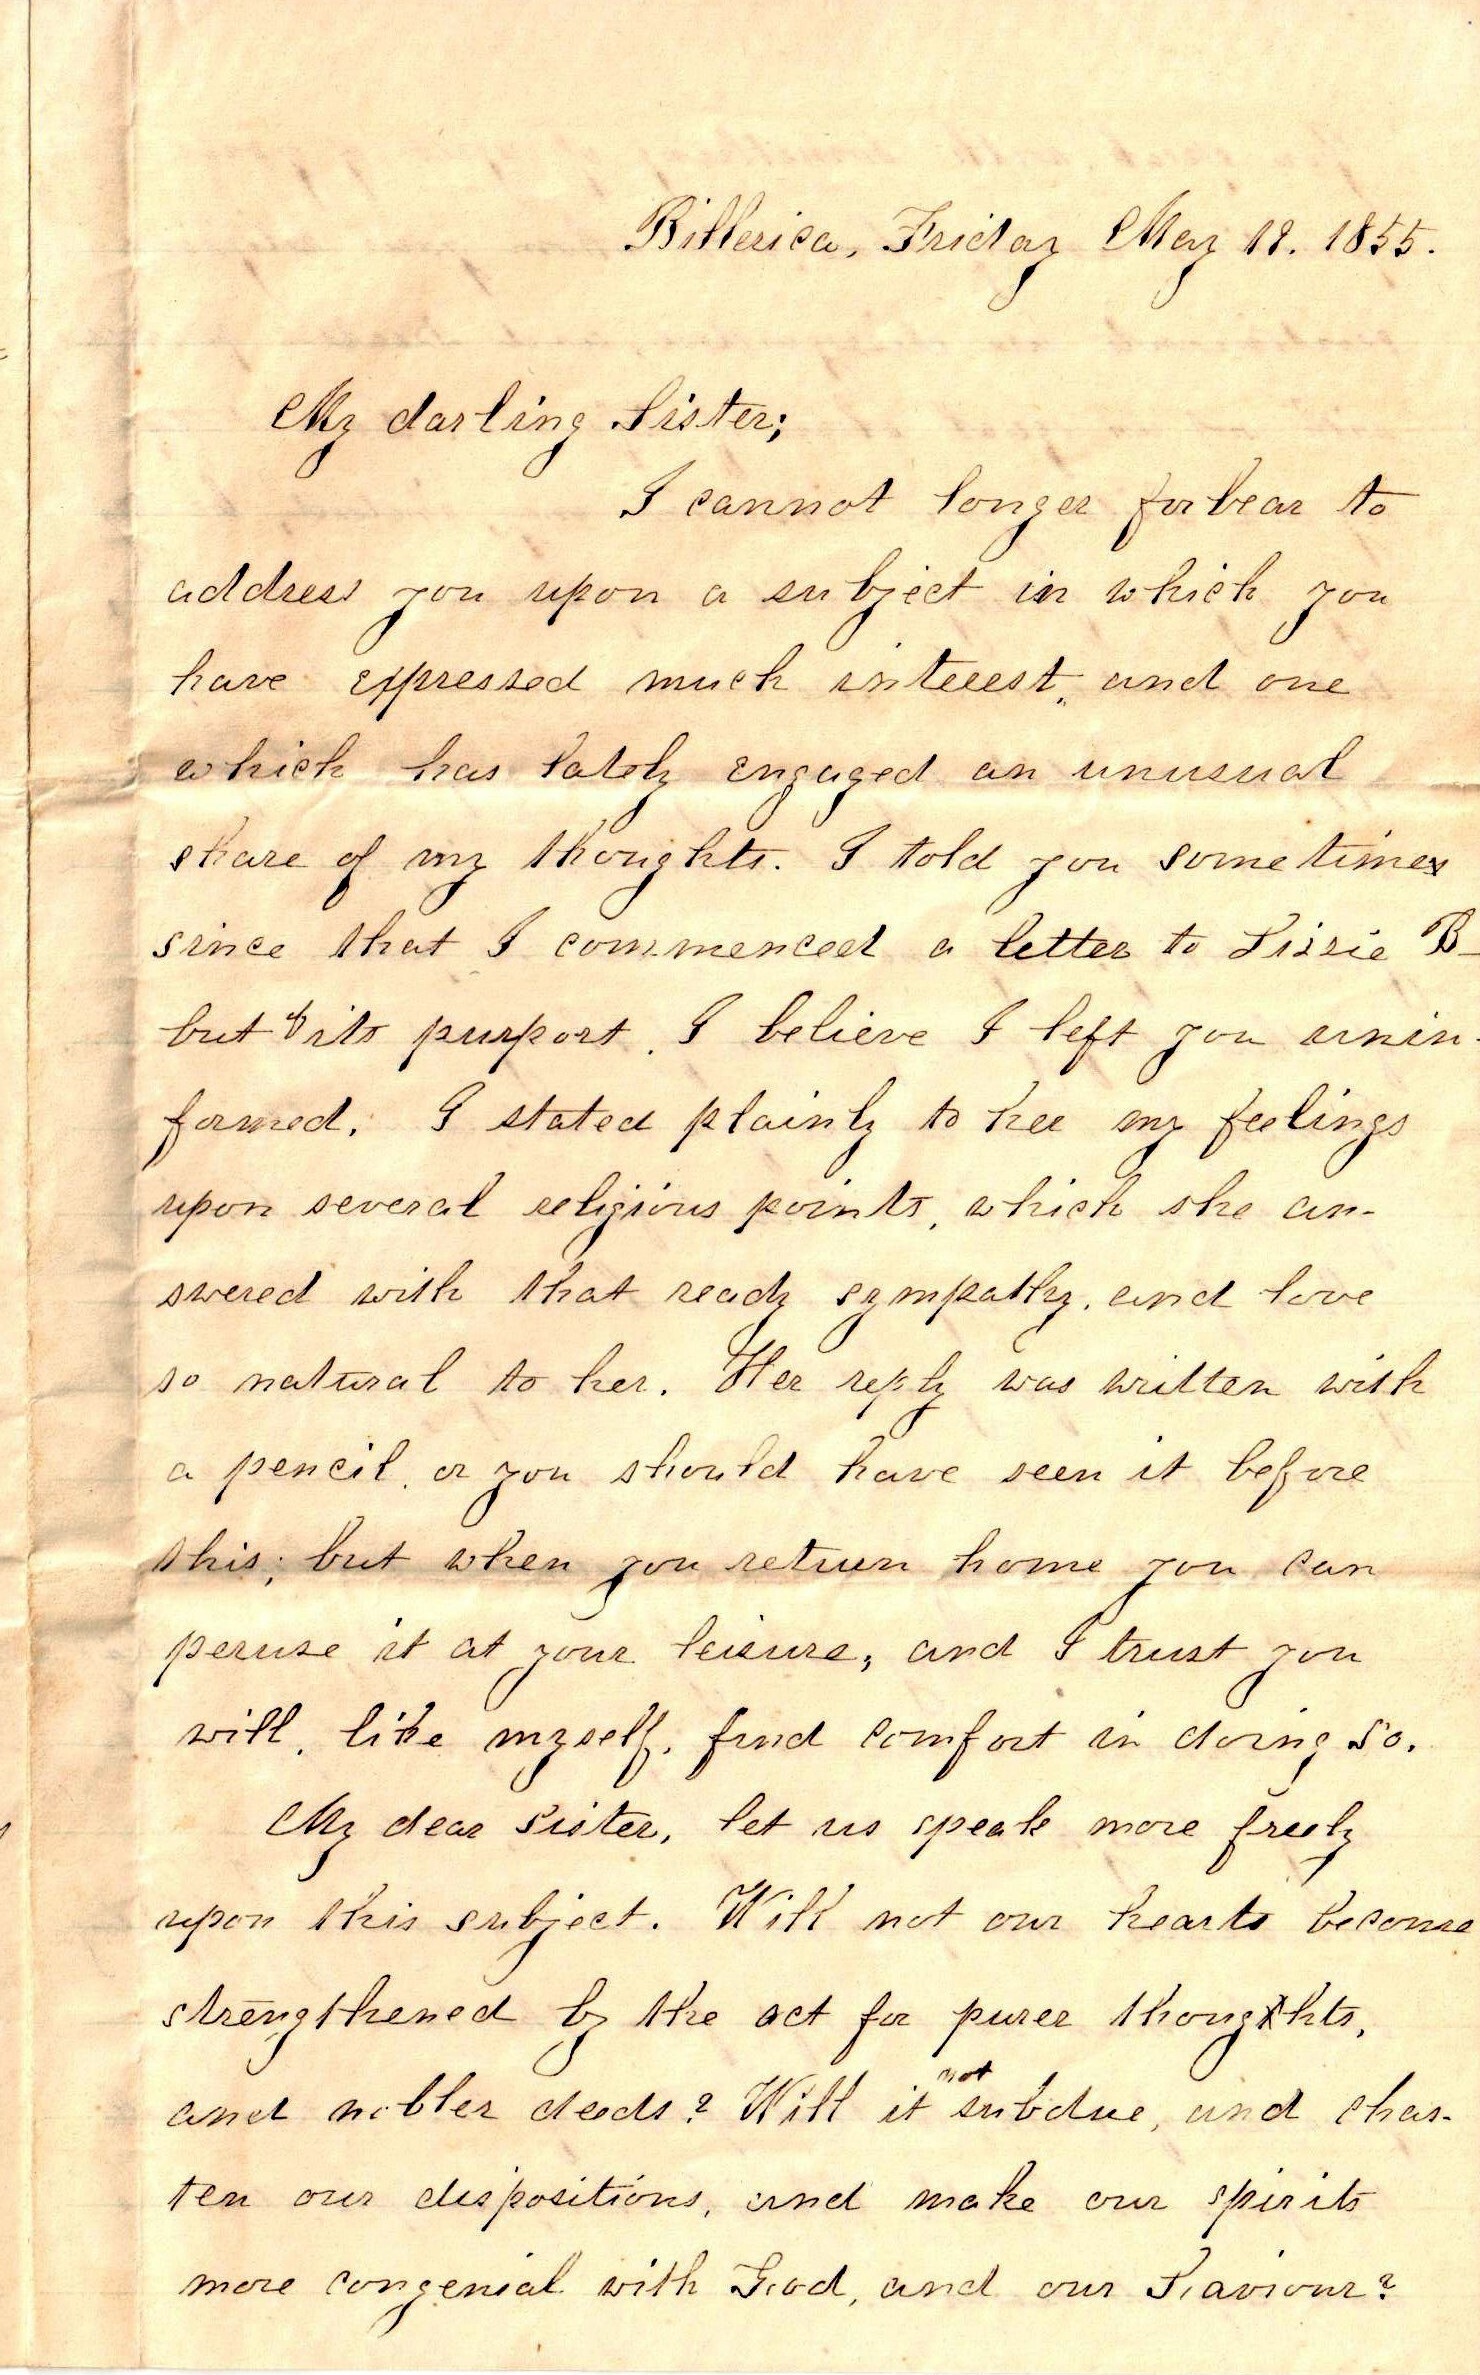 Billerica, Friday May 18. 1855.
My darling Sister;
I cannot longer forbear to
address you upon a subject in which you
have expressed much interest, and one
which has lately engaged an unusual
share of my thoughts. I told you sometimes
since that I commenced a letter to Lizzie B-
but of its purport, I believe I left you unin-
formed. I stated plainly to her my feelings
upon several religious points, which she an-
swered with that ready sympathy, and love
so natural to her. Her reply was written with
a pencil, or you should have seen it before
this; but when you return home you can
peruse it at your leisure, and I trust you
will, like myself, find comfort in doing so.
My dear sister, let us speak more freely
upon this subject. Will not our hearts become
strengthened by the act for purer thoughts,
and nobler deeds? Will it not subdue, and chas-
ten our dispositions, and make our spirits
more congenial with God, and our Saviour?